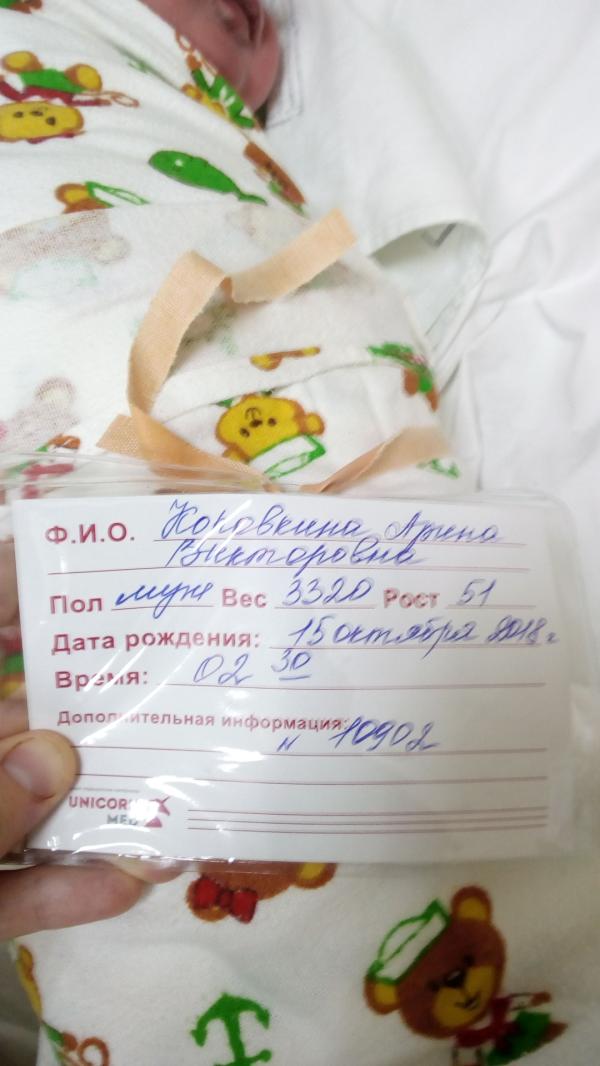 Ф.И.О. Коровкина Арина
Викторовна
Пол муж Вес 3320 Рост 51
Дата рождения: 15 октября 2018 г
Время: 02 30
Дополнительная информация:
N 10902
UNICORN
MED